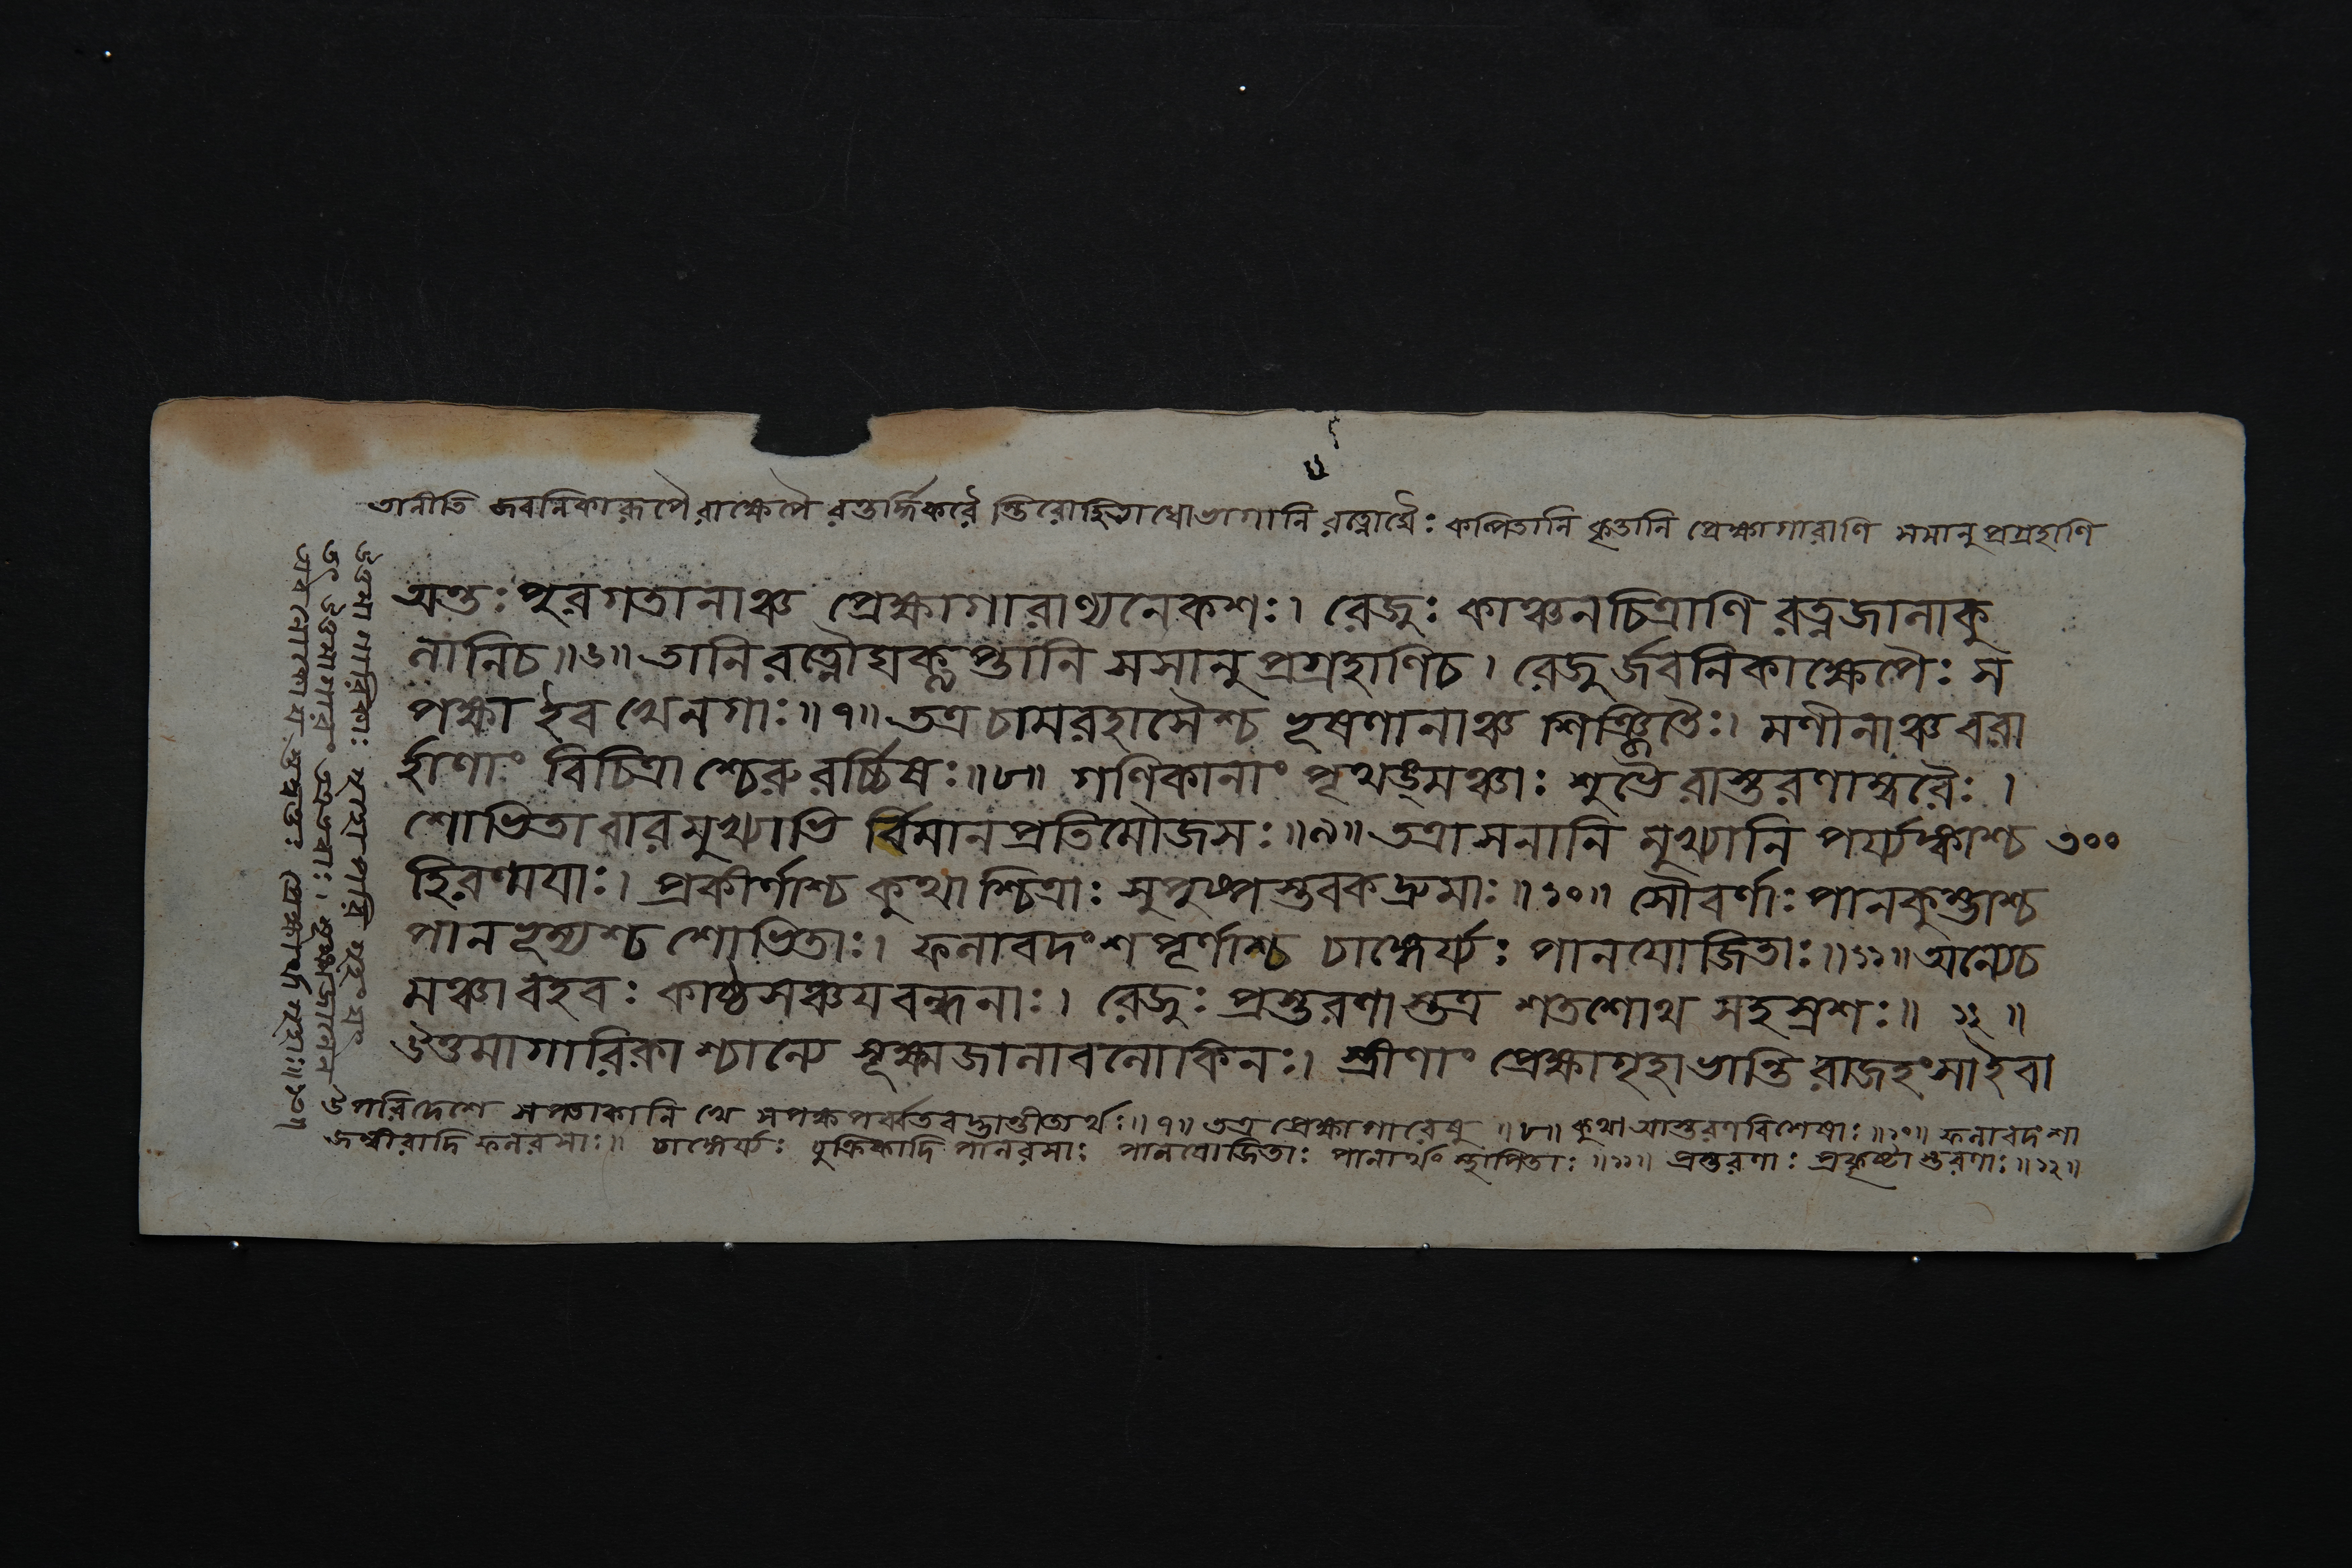 তানীতি জবনিকারূপৈরাক্ষেপৈ রন্তর্দ্ধিকরৈ স্তিরোহিতাধোভাগানি রত্নৌঘৈঃ কল্পিতানি কৃতানি প্রেক্ষাগারাণি সসানুপ্রগ্রহাণি
অন্তঃপুরগতানাঞ্চ প্রেক্ষাগারাণ্যনেকশঃ। রেজুঃ কাঞ্চনচিত্রাণি রত্নজালাকু
লানিচ॥৬॥ তানি রত্নৌঘকৢপ্তানি সসানুপ্রগ্রহাণিচ। রেজুর্জবনিকাক্ষেপৈঃ স
পক্ষা ইব খেনগাঃ॥৭॥ তত্র চামরহাসৈশ্চ ভূষণানাঞ্চ শিঞ্জিতৈঃ। মণীনাঞ্চ বরা
র্হাণাং বিচিত্রাশ্চেরুরর্চ্চিষঃ॥৮॥ গণিকানাং পৃথঙ্মঞ্চাঃ শুভৈরাস্তরণাম্বরৈঃ।
শোভিতা বারমুখ্যাভি র্বিমানপ্রতিমৌজসঃ॥৯॥ তত্রাসনানি মুখ্যানি পর্য্যঙ্কাশ্চ ৩০০
হিরণ্ময়াঃ। প্রকীর্ণাশ্চ কুথাশ্চিত্রাঃ সুপুষ্পস্তবকদ্রুমাঃ॥১০॥ সৌবর্ণাঃ পানকুম্ভাশ্চ
পানভূম্যশ্চ শোভিতাঃ। ফলাবদংশপূর্ণাশ্চ চাঙ্গের্য্যঃ পানযোজিতাঃ॥১১॥ অন্যেচ
মঞ্চা বহবঃ কাষ্ঠসঞ্চয়বন্ধনাঃ। রেজুঃ প্রস্তরণাস্তত্র শতশোথ সহস্রশঃ॥ ১২ ॥
উত্তমাগারিকাশ্চান্যে সূক্ষ্মজালাবলোকিনঃ। স্ত্রীণাং প্রেক্ষাগৃহা ভান্তি রাজহংসা ইবা
উপরিদেশে সপতাকানি খে সপক্ষপর্ব্বতবদ্ভান্তীত্যর্থঃ॥৭॥ তত্র প্রেক্ষাগারেষু ॥৮॥ কুথা আস্তরণবিশেষাঃ॥১০॥ ফলাবদংশা
জম্বীরাদি ফলরসাঃ॥ চাঙ্গের্য্যঃ চুক্রিকাদি পানরসাঃ পানযোজিতাঃ পানার্থং স্থাপিতাঃ ॥১১॥ প্রস্তরণাঃ প্রকৃষ্টাস্তরণাঃ॥১২॥
উত্তমাগারিকাঃ
উত্তমাগারং সূক্ষ্মজালেন